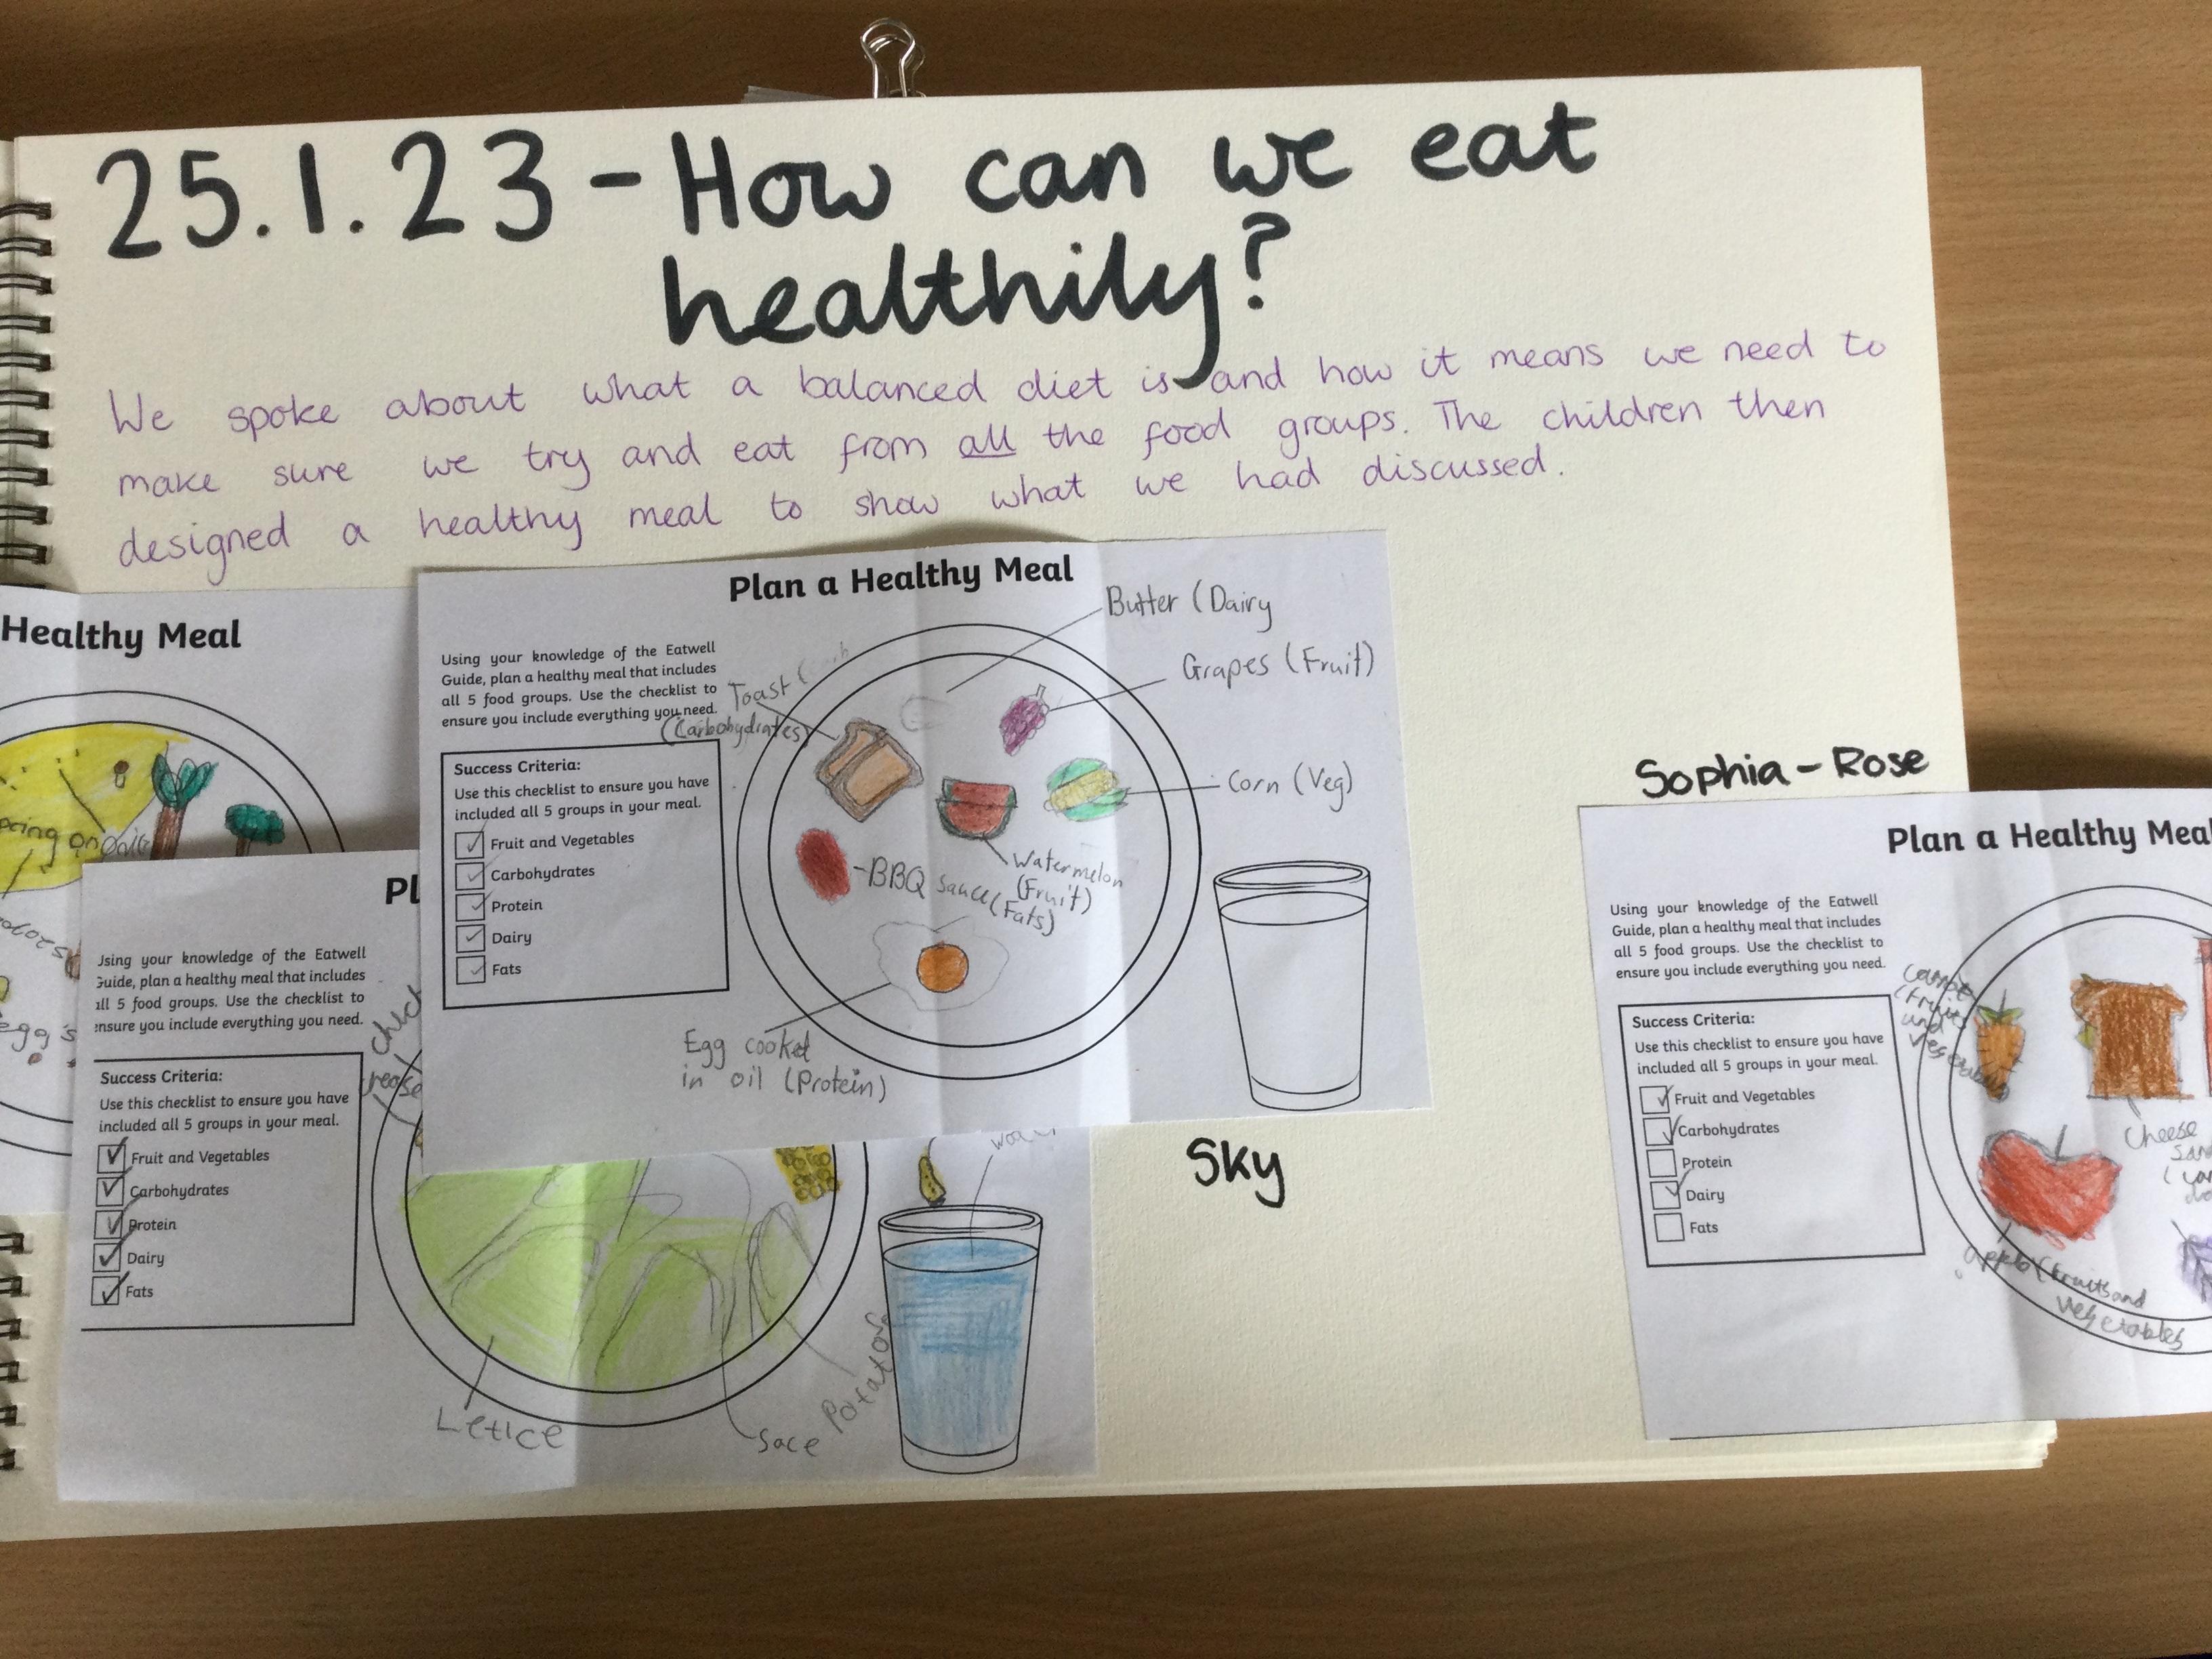 25.1.23 - How can we eat
healthily?
We spoke about what a balanced diet is and how it means we need to
make sure we try and eat from all the food groups. The children then
designed a healthy meal to show what we had discussed.
Healthy Meal
egg's
Pl
Using your knowledge of the Eatwell
Guide, plan a healthy meal that includes
all 5 food groups. Use the checklist to
ensure you include everything you need.
Success Criteria:
Use this checklist to ensure you have
included all 5 groups in your meal.
Fruit and Vegetables
Carbohydrates
Protein
Dairy
Fats
Letice
Sace
Potatoe
Plan a Healthy Meal
Using your knowledge of the Eatwell
Guide, plan a healthy meal that includes
all 5 food groups. Use the checklist to
ensure you include everything you need.
Success Criteria:
Use this checklist to ensure you have
included all 5 groups in your meal.
Fruit and Vegetables
Carbohydrates
Protein
Dairy
Fats
Butter (Dairy
Grapes (Fruit)
Toast (
(Carbohydrates)
Corn (Veg)
Watermelon
(Fruit)
BBQ sauce (Fats)
Egg cooked
in oil (Protein)
Sky
Sophia-Rose
Plan a Healthy Meal
Using your knowledge of the Eatwell
Guide, plan a healthy meal that includes
all 5 food groups. Use the checklist to
ensure you include everything you need.
Success Criteria:
Use this checklist to ensure you have
included all 5 groups in your meal.
Fruit and Vegetables
Carbohydrates
Protein
Dairy
Fats
Carrot
(Fruits
and
Vegetables
Cheese
Apple (fruits and
Vegetables